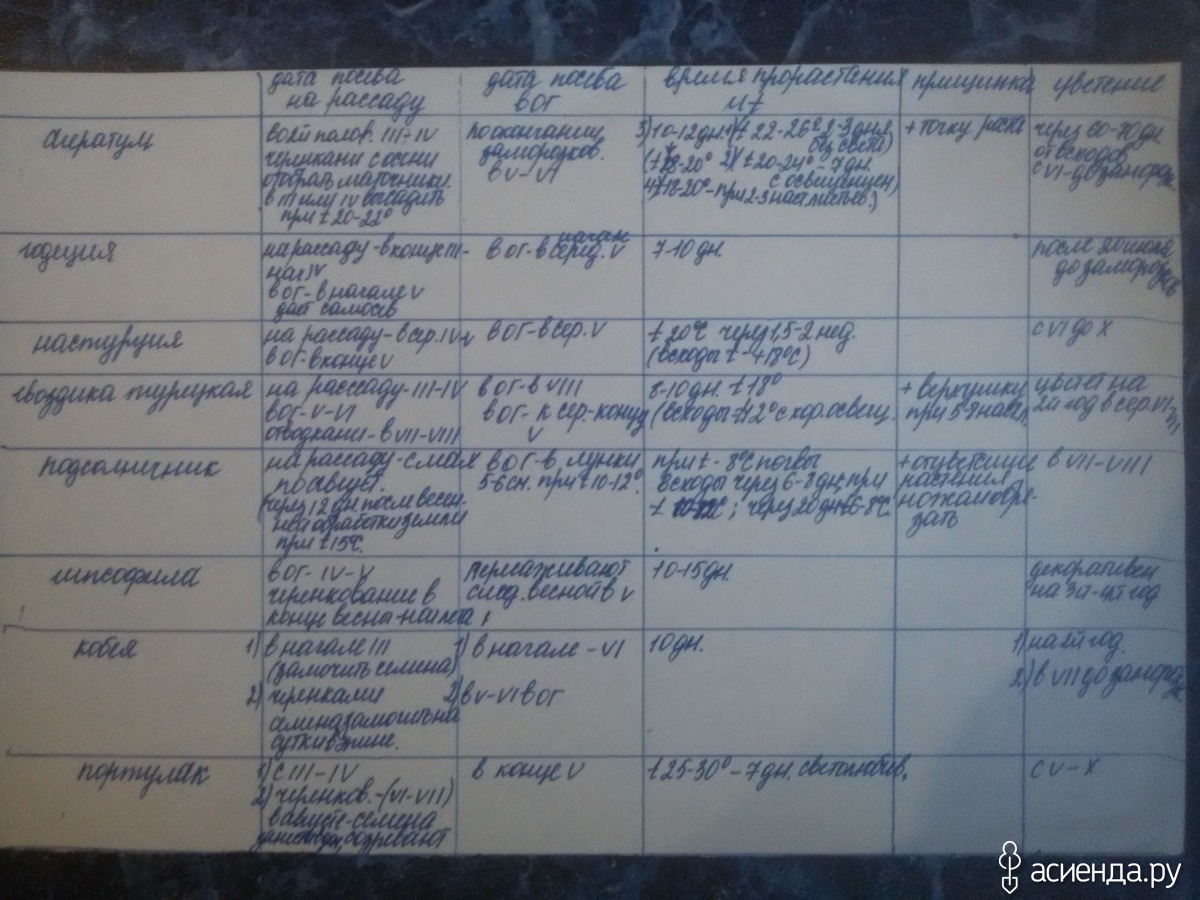 дата посева
на рассаду
дата посева
в ОГ
время прорастания
и t
прищипка
цветение
агератум
во 2й полов. III-IV
черенками с осени
отобрать маточники.
в III или IV высадить
при t 20-22°
по окончании
заморозков.
в V-VI
3) 10-12 дн. 1) t 22-26° 2-3 дня
без света)
(t 18-20° 2) t 20-24° - 7 дн.
с освещением)
4) t 18-20° - при 2-3 наст. листьев.)
+ точку роста
через 60-70 дн
от всходов
с VI - до замороз.
годеция
на рассаду - в конце III-
нач IV
в ОГ - в начале V
даёт самосев
начале
в ОГ - в серед. V
7-10 дн.
после 20 июля
до заморозков
настурция
на рассаду - в сер. IV-V
в ОГ - в конце V
в ОГ - в сер. V
t 20°C через 1,5-2 нед.
(всходы t - +18°C)
с VI до X
гвоздика турецкая
на рассаду - III-IV
в ОГ - V-VI
отводками - в VII-VIII
в ОГ - в VIII
в ОГ - к сер.-концу
V
8-10 дн. t 18°
(всходы t 12° с хор. освещ.
+ верхушку
при 5-9
цветёт на
2й год в сер. VI-VII
подсолнечник
на рассаду - с мая
по август.
(через 12 дн. после весен-
ней обработки земли
при t 15°C.
в ОГ - в лунки
5-6 см. при t 10-12°
при t - 8°C почвы
всходы через 6-8 дн, при
t 10-12°C; через 20 дн - t 6-8°C
+ отцветшие
растения
ножами обре-
зать
в VII-VIII
гипсофила
в ОГ - IV-V
черенкование в
конце весны - нач. лета
пересаживают
след. весной в V
10-15 дн.
декоративен
на 3й-4й год
кобея
1) в начале III
(замочить семена)
2) черенками
семена замочить на
сутки в
1) в начале - VI
2) в V-VI в ОГ
10 дн.
1) на год.
2) в VII до замороз.
портулак
1) с III-IV
2) черенков. - (VI-VII)
в августе - семена
созревают
в конце V
t 25-30° - 7 дн. светолюбив.
с V-X
асиенда.ру